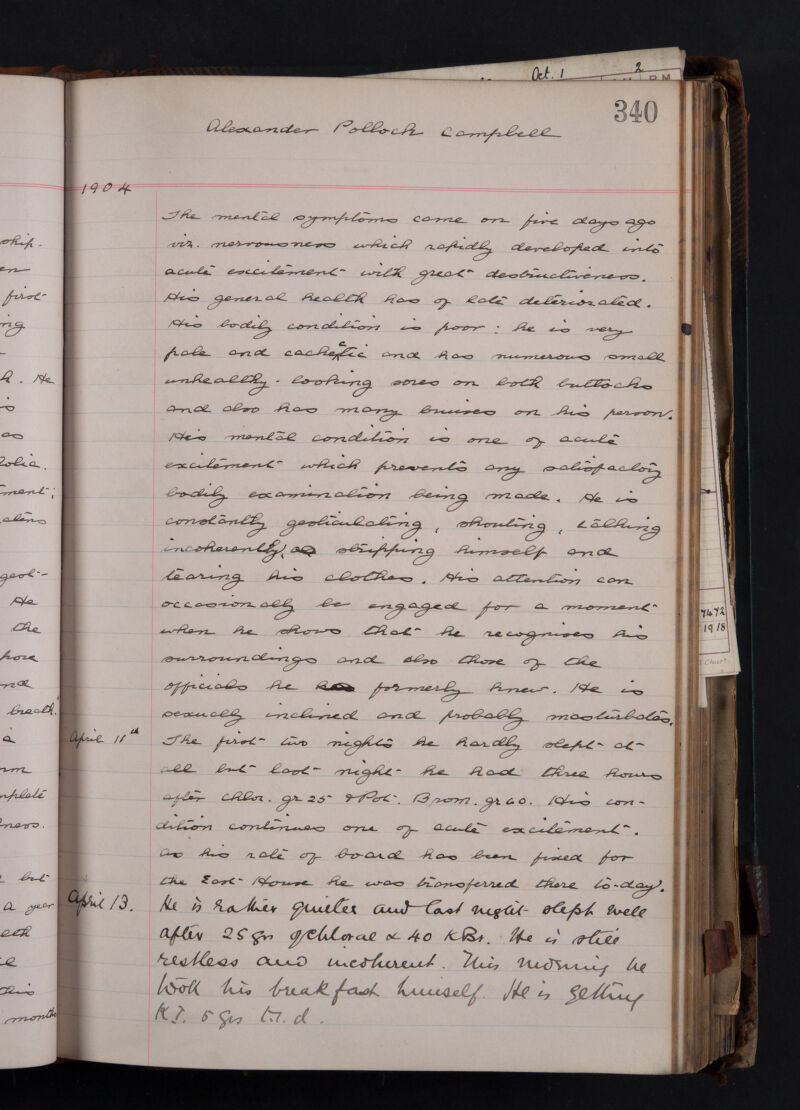 Oct. 1 2
P M
340
Alexander Pollock Campbell
1904
The mental symptoms came on five days ago
viz. nervousness which rapidly developed into
acute excitement with great destructiveness.
His general health has of late deteriorated.
His bodily condition is poor: he is very
pale and cachetic and has numerous small
unhealthy-looking sores on both buttocks
and also has many bruises on his person.
His mental condition is one of acute
excitement which prevents any satisfactory
bodily examination being made. He is
constantly gesticulating, shouting, talking
incoherently, stripping himself and
tearing his clothes. His attention can
occasionally be engaged for a moment
when he shows that he recognises his
surroundings and also those of the
officials he formerly knew. He is
sexually inclined and probably masturbates.
April 11th The first two nights he hardly slept at
all but last night he had three hours
after chlor. gr 25 & Pot. Brom. gr 40. His con-
dition continues one of acute excitement.
As his rate of board has been fixed for
the East House he was transferred there to-day.
April 13. He is rather quieter and last night slept well
after 25 grs of chloral & 40 KBr. He is still
restless and incoherent. This morning he
took his breakfast himself. He is getting
K.I. 5 grs t.i.d.
ship-
en
first-
ng
h. He
as
ment;
gest-
He
the
nd
breath.
a
plete
ness.
but
a year
months
7472
1918